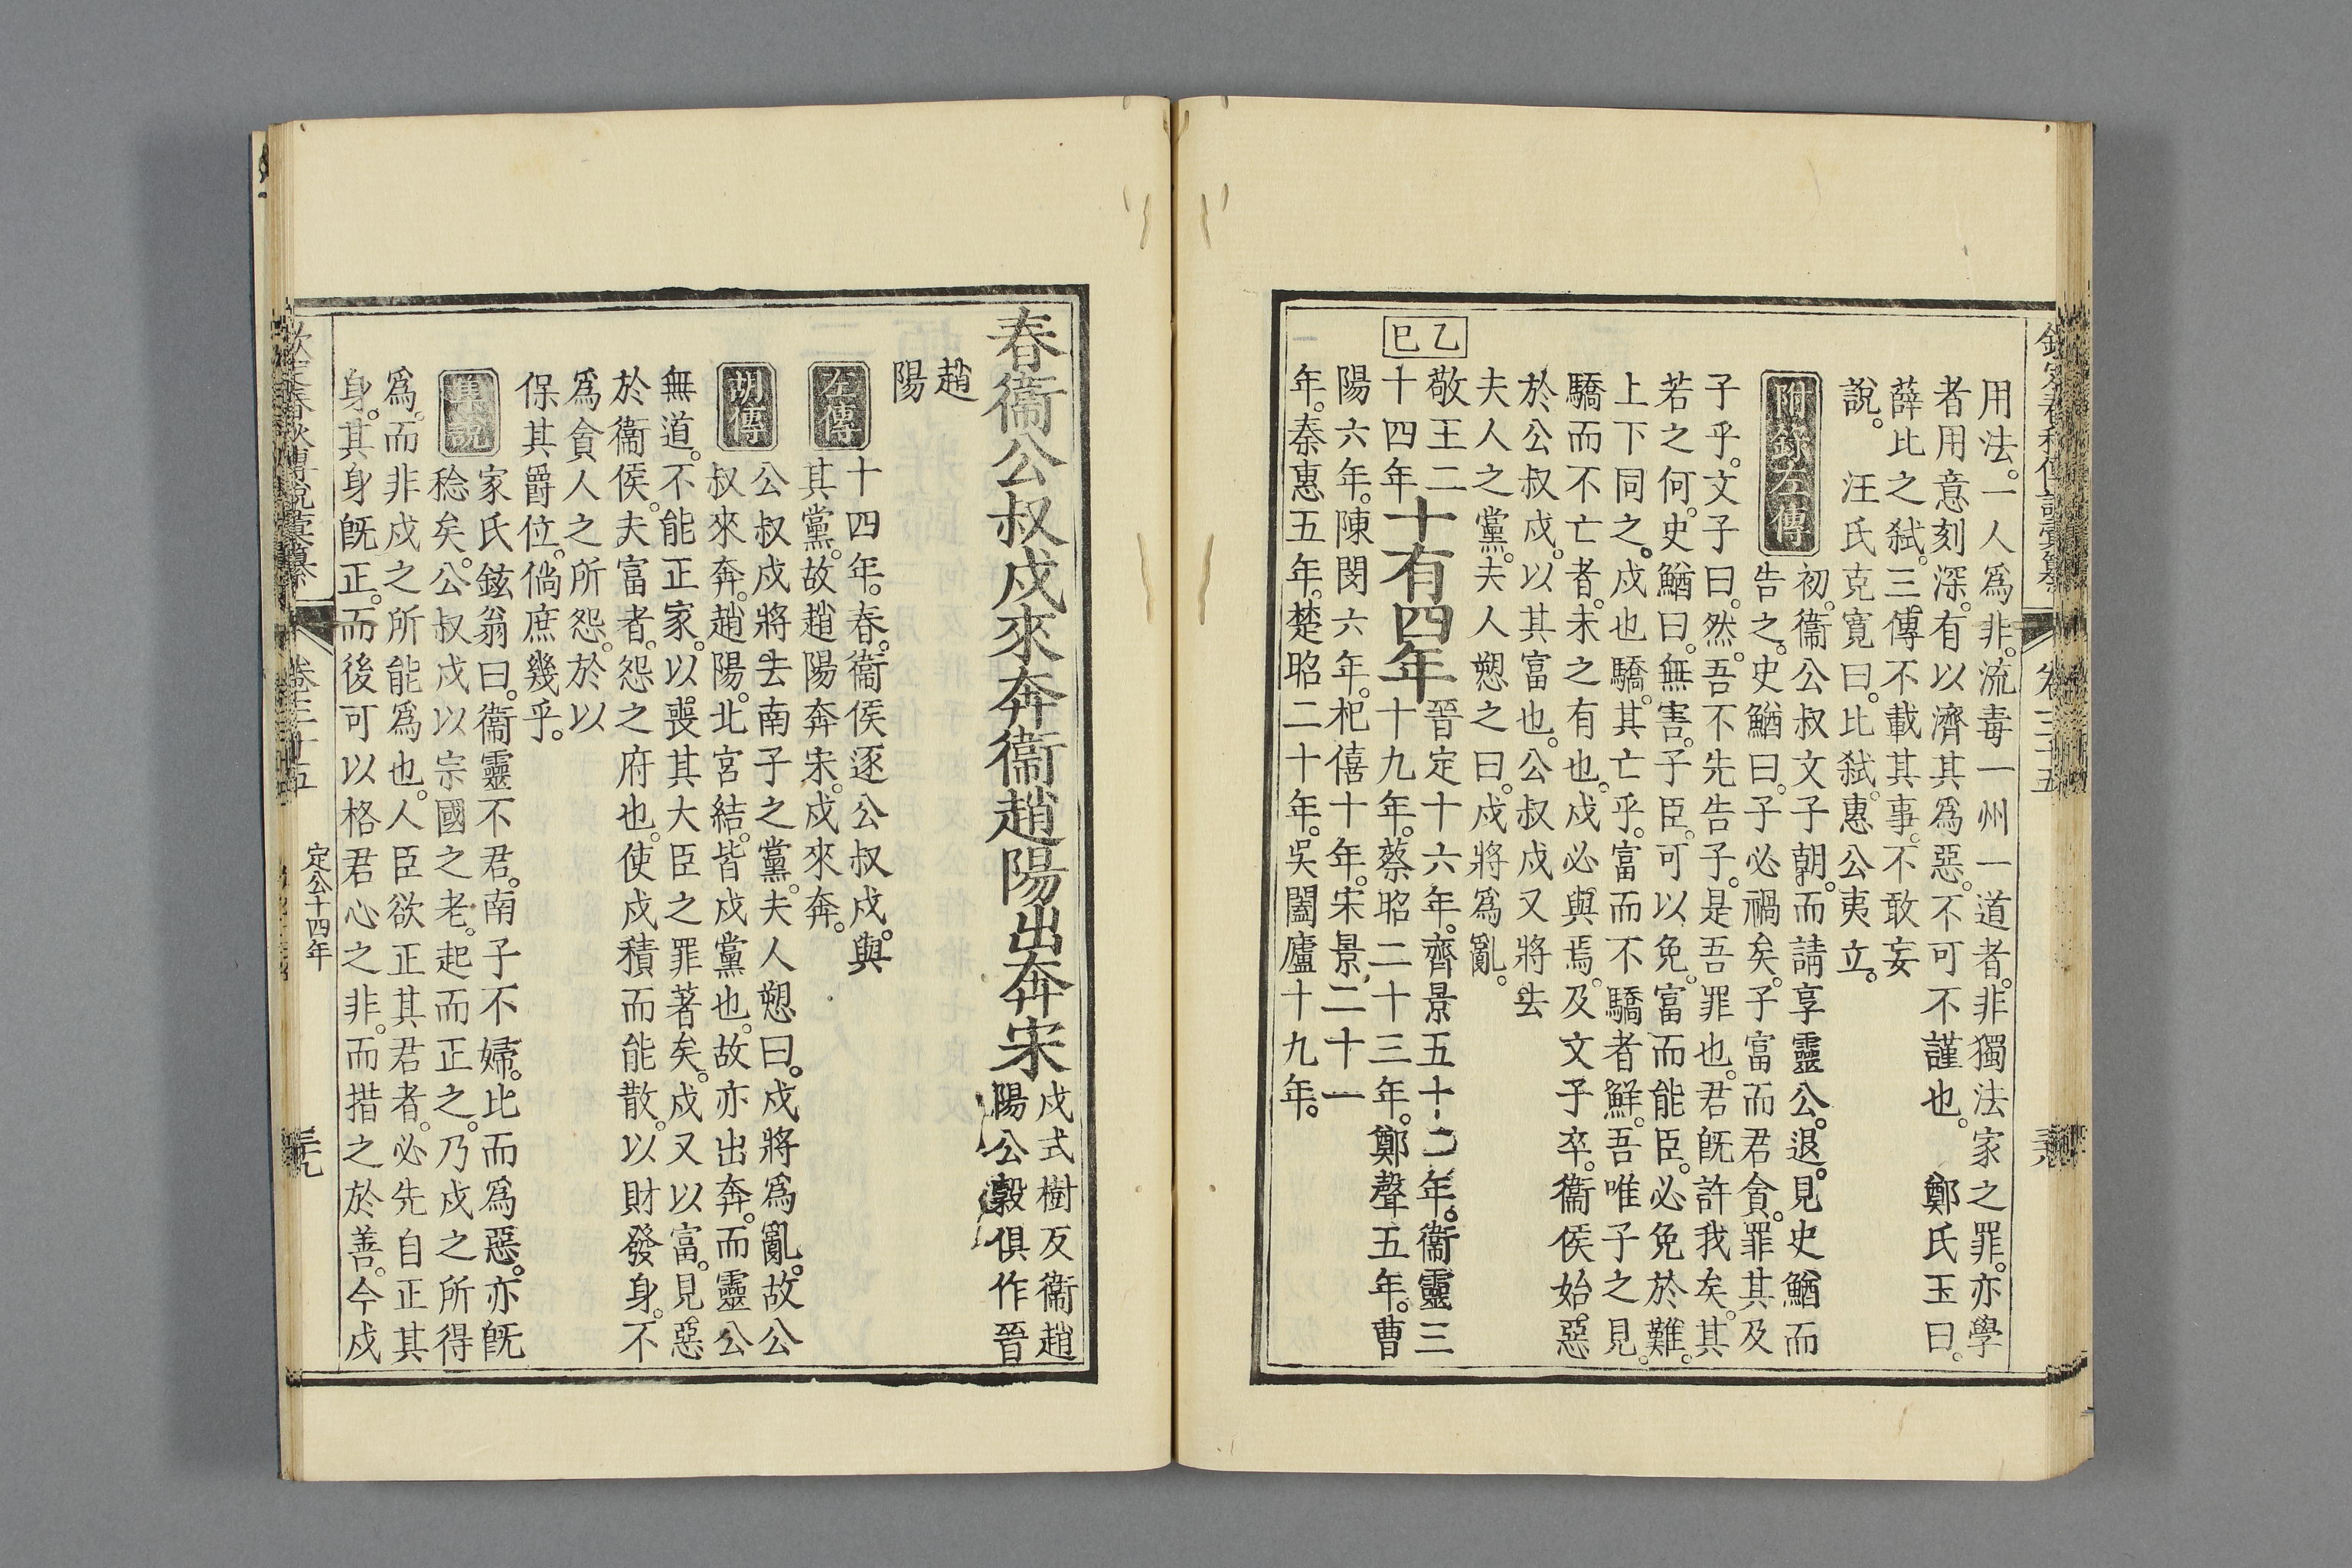 欽定春秋傳說彙纂 卷三十五
用法。一人爲非。流毒一州一道者。非獨法家之罪。亦學
者用意刻深。有以濟其爲惡。不可不謹也。 鄭氏玉曰。
薛比之弒。三傳不載其事。不敢妄
說。 汪氏克寬曰。比弒。惠公夷立。
附錄左傳
初。衞公叔文子朝。而請享靈公。退。見史鰌而
告之。史鰌曰。子必禍矣。子富而君貪。罪其及
子乎。文子曰。然。吾不先告子。是吾罪也。君旣許我矣。其
若之何。史鰌曰。無害。子臣。可以免。富而能臣。必免於難。
上下同之。戍也驕。其亡乎。富而不驕者鮮。吾唯子之見。
驕而不亡者。未之有也。戍必與焉。及文子卒。衞侯始惡
於公叔戍。以其富也。公叔戍又將去
夫人之黨。夫人愬之曰。戍將爲亂。
乙巳
敬王二
十四年
十有四年
晉定十六年。齊景五十二年。衞靈三
十九年。蔡昭二十三年。鄭聲五年。曹
陽六年。陳閔六年。杞僖十年。宋景二十一
年。秦惠五年。楚昭二十年。吳闔廬十九年。
春衞公叔戍來奔衞趙陽出奔宋
戍式樹反衞趙
陽公穀俱作晉
趙
陽
左傳
十四年。春。衞侯逐公叔戍。與
其黨。故趙陽奔宋。戍來奔。
胡傳
公叔戍將去南子之黨。夫人愬曰。戍將爲亂。故公
叔來奔。趙陽。北宮結。皆戍黨也。故亦出奔。而靈公
無道。不能正家。以喪其大臣之罪著矣。戍又以富。見惡
於衞侯。夫富者。怨之府也。使戍積而能散。以財發身。不
爲貪人之所怨。於以
保其爵位。倘庶幾乎。
集說
家氏鉉翁曰。衞靈不君。南子不婦。比而爲惡。亦旣
稔矣。公叔戍以宗國之老。起而正之。乃戍之所得
爲。而非戍之所能爲也。人臣欲正其君者。必先自正其
身。其身旣正。而後可以格君心之非。而措之於善。今戍
欽定春秋傳說彙纂 卷三十五 定公十四年 三十九